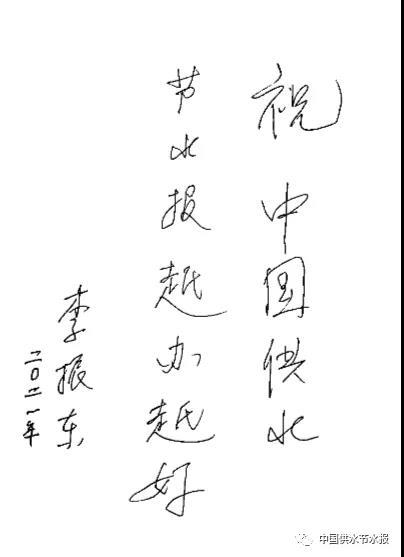 祝中国供水
节水报越办越好
李振东
二〇二一年
中国供水节水报